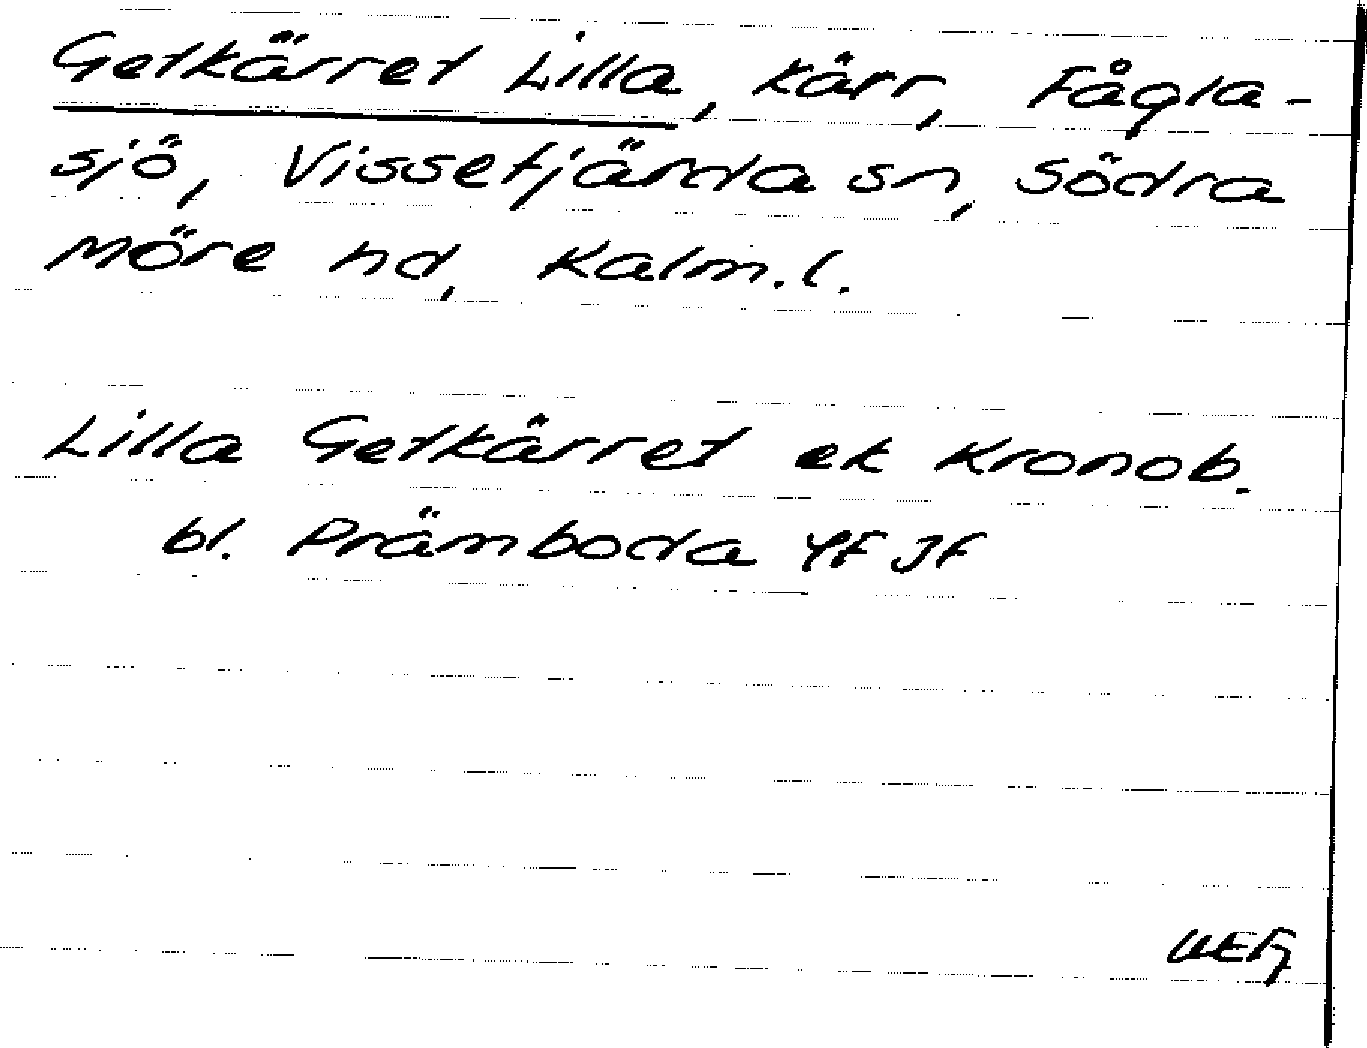 Getkärret Lilla, kärr, Fågla-
sjö, Vissefjärda sn, Södra
Möre hd, Kalm.l.
Lilla Getkärret ek Kronob.
bl. Prämboda